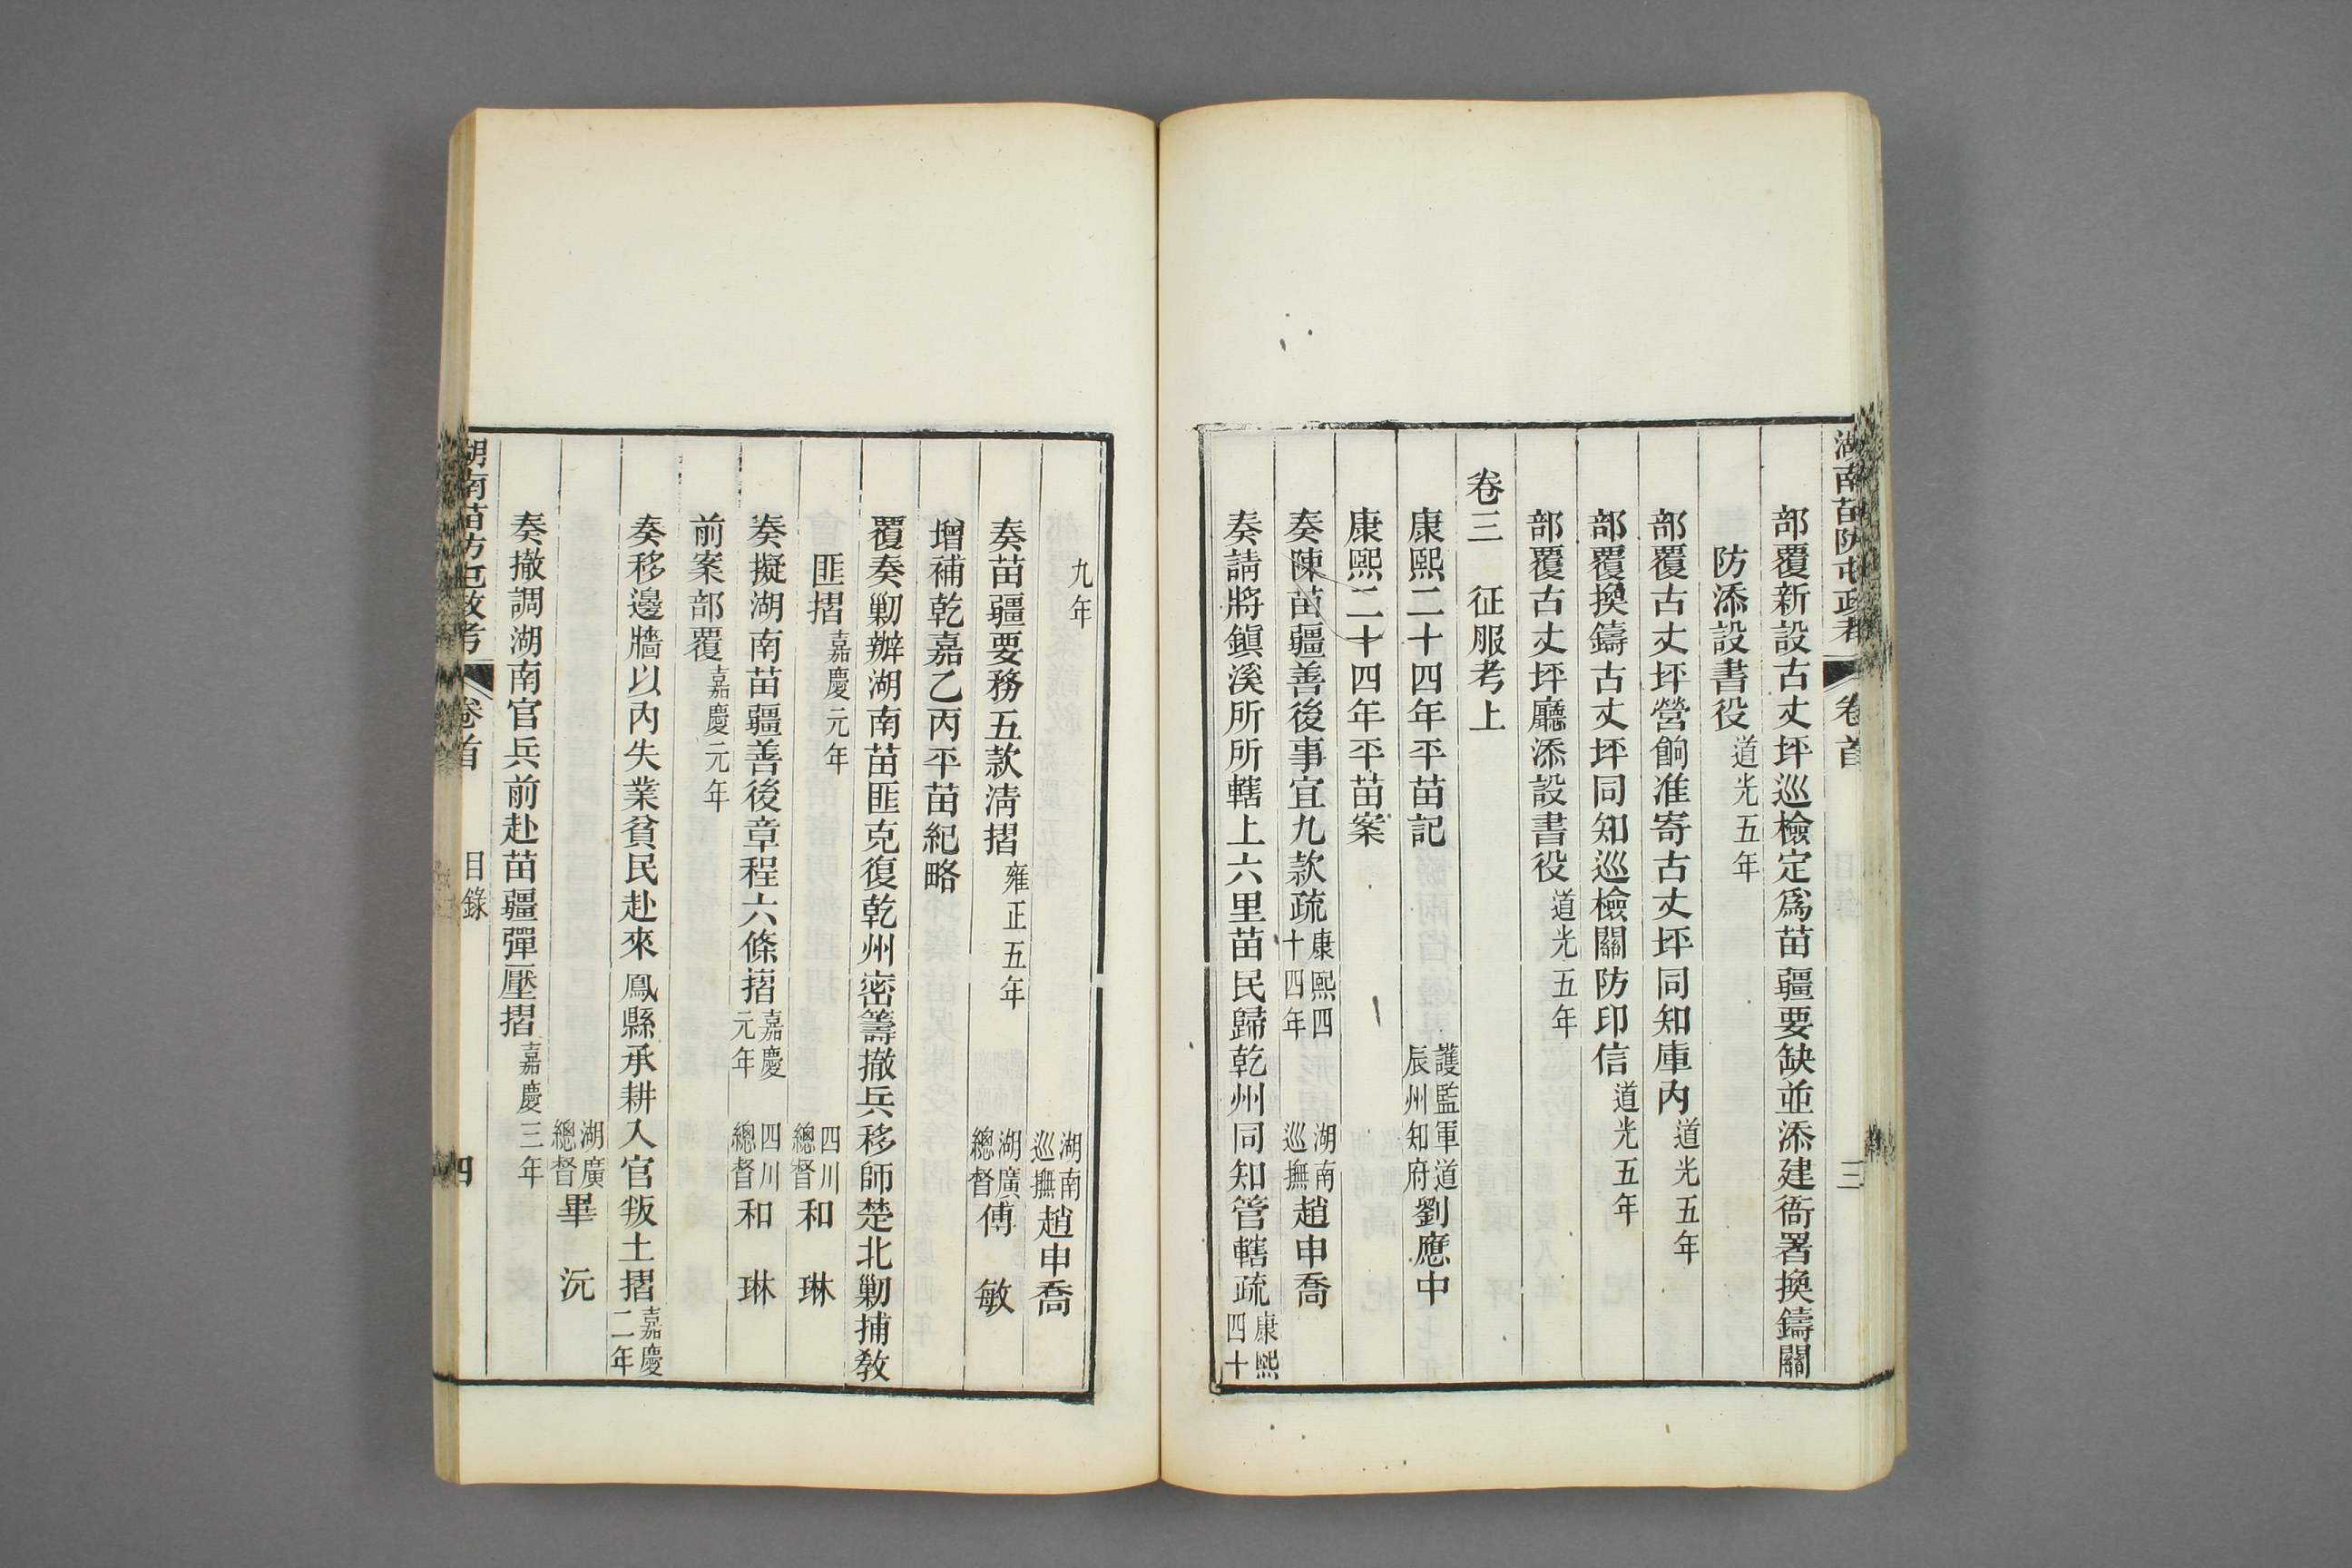 湖南苗防屯政考 卷首 三
部覆新設古丈坪巡檢定爲苗疆要缺並添建衙署換鑄關
防添設書役道光五年
部覆古丈坪營餉准寄古丈坪同知庫內道光五年
部覆換鑄古丈坪同知巡檢關防印信道光五年
部覆古丈坪廳添設書役道光五年
卷三 征服考上
康熙二十四年平苗記 護監軍道辰州知府劉應中
康熙二十四年平苗案
奏陳苗疆善後事宜九款疏康熙四十四年 湖南巡撫趙申喬
奏請將鎭溪所所轄上六里苗民歸乾州同知管轄疏康熙四十
九年 湖南巡撫趙申喬
奏苗疆要務五款淸摺雍正五年 湖廣總督傅 敏
增補乾嘉乙丙平苗紀略
覆奏剿辦湖南苗匪克復乾州密籌撤兵移師楚北剿捕敎
匪摺嘉慶元年 四川總督和 琳
奏擬湖南苗疆善後章程六條摺嘉慶元年 四川總督和 琳
前案部覆嘉慶元年
奏移邊牆以內失業貧民赴來鳳縣承耕入官叛土摺嘉慶二年
湖廣總督畢 沅
奏撤調湖南官兵前赴苗疆彈壓摺嘉慶三年
湖南苗防屯政考 卷首 目錄 四